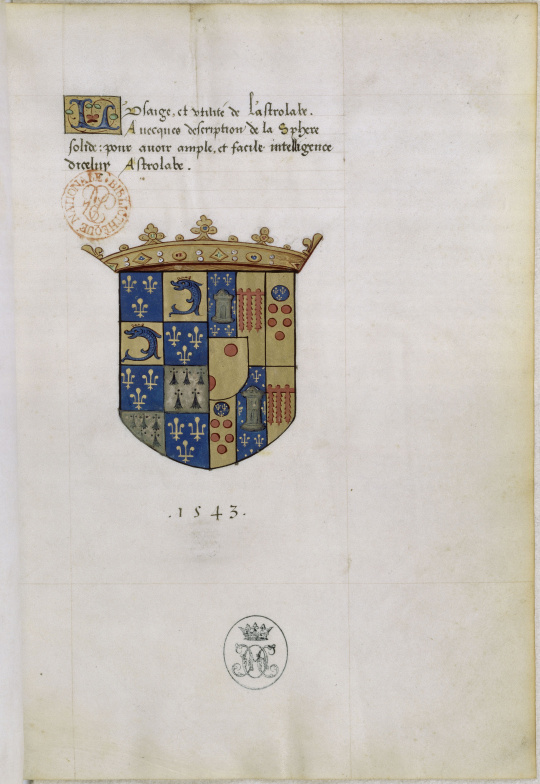 L'Vsaige, et vtilité de l'astrolabe.
Auecques description de la Sphere
solide: pour auoir ample, et facile intelligence
d'iceluy Astrolabe.
BIBLIOTHEQUE NATIONALE
.1543.